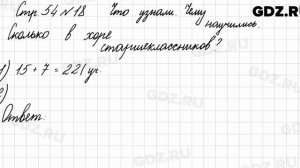 GDZ.RU
Стр. 54 №18 Что узнали. Чему
научились.
Сколько в хоре
старшеклассников?
1) 15 + 7 = 22 (уч.
2)
Ответ: